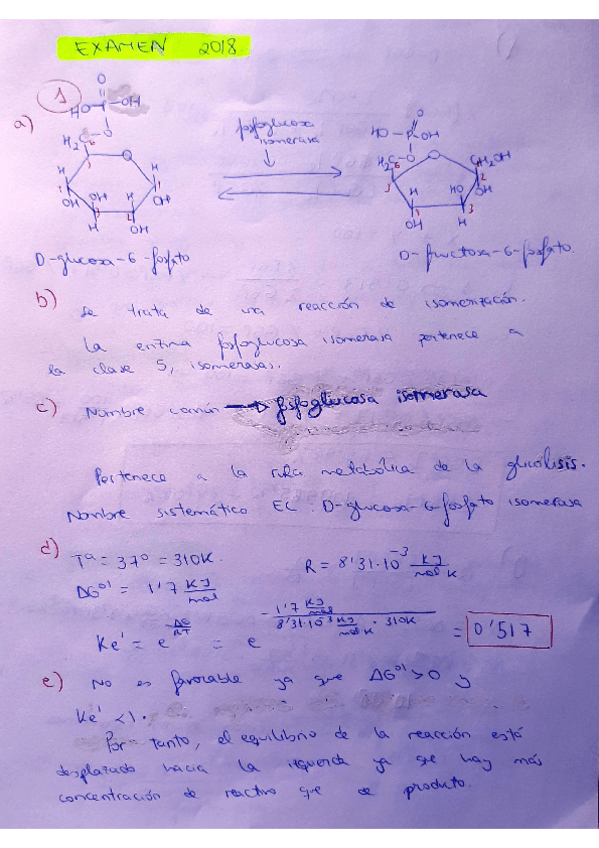 EXAMEN 2018
1
a)
O
HO-P-OH
O
H2C
6
O
H
H
H
OH
OH
H
H
OH
OH
D-glucosa-6-fosfato
fosfoglucosa
isomerasa
O
HO-P-OH
H2C-O
6
O
CH2OH
H
HO
OH
OH
H
D-fructosa-6-fosfato
b) Se trata de una reacción de isomerización.
La enzima fosfoglucosa isomerasa pertenece a
la clase 5, isomerasas.
c) Nombre común → fosfoglucosa isomerasa
Pertenece a la ruta metabólica de la glicólisis.
Nombre sistemático EC: D-glucosa-6-fosfato isomerasa
d) Tª = 37º = 310K. R = 8'31·10^-3 KJ/mol K
ΔG°' = 1'7 KJ/mol
Ke' = e^(-ΔG/RT) = e^(-1'7 KJ/mol / 8'31·10^-3 KJ/mol K · 310K) = 0'517
e) No es favorable ya que ΔG°'>0 y
Ke' <1.
Por tanto, el equilibrio de la reacción está
desplazado hacia la izquierda ya que hay más
concentración de reactivo que de producto.